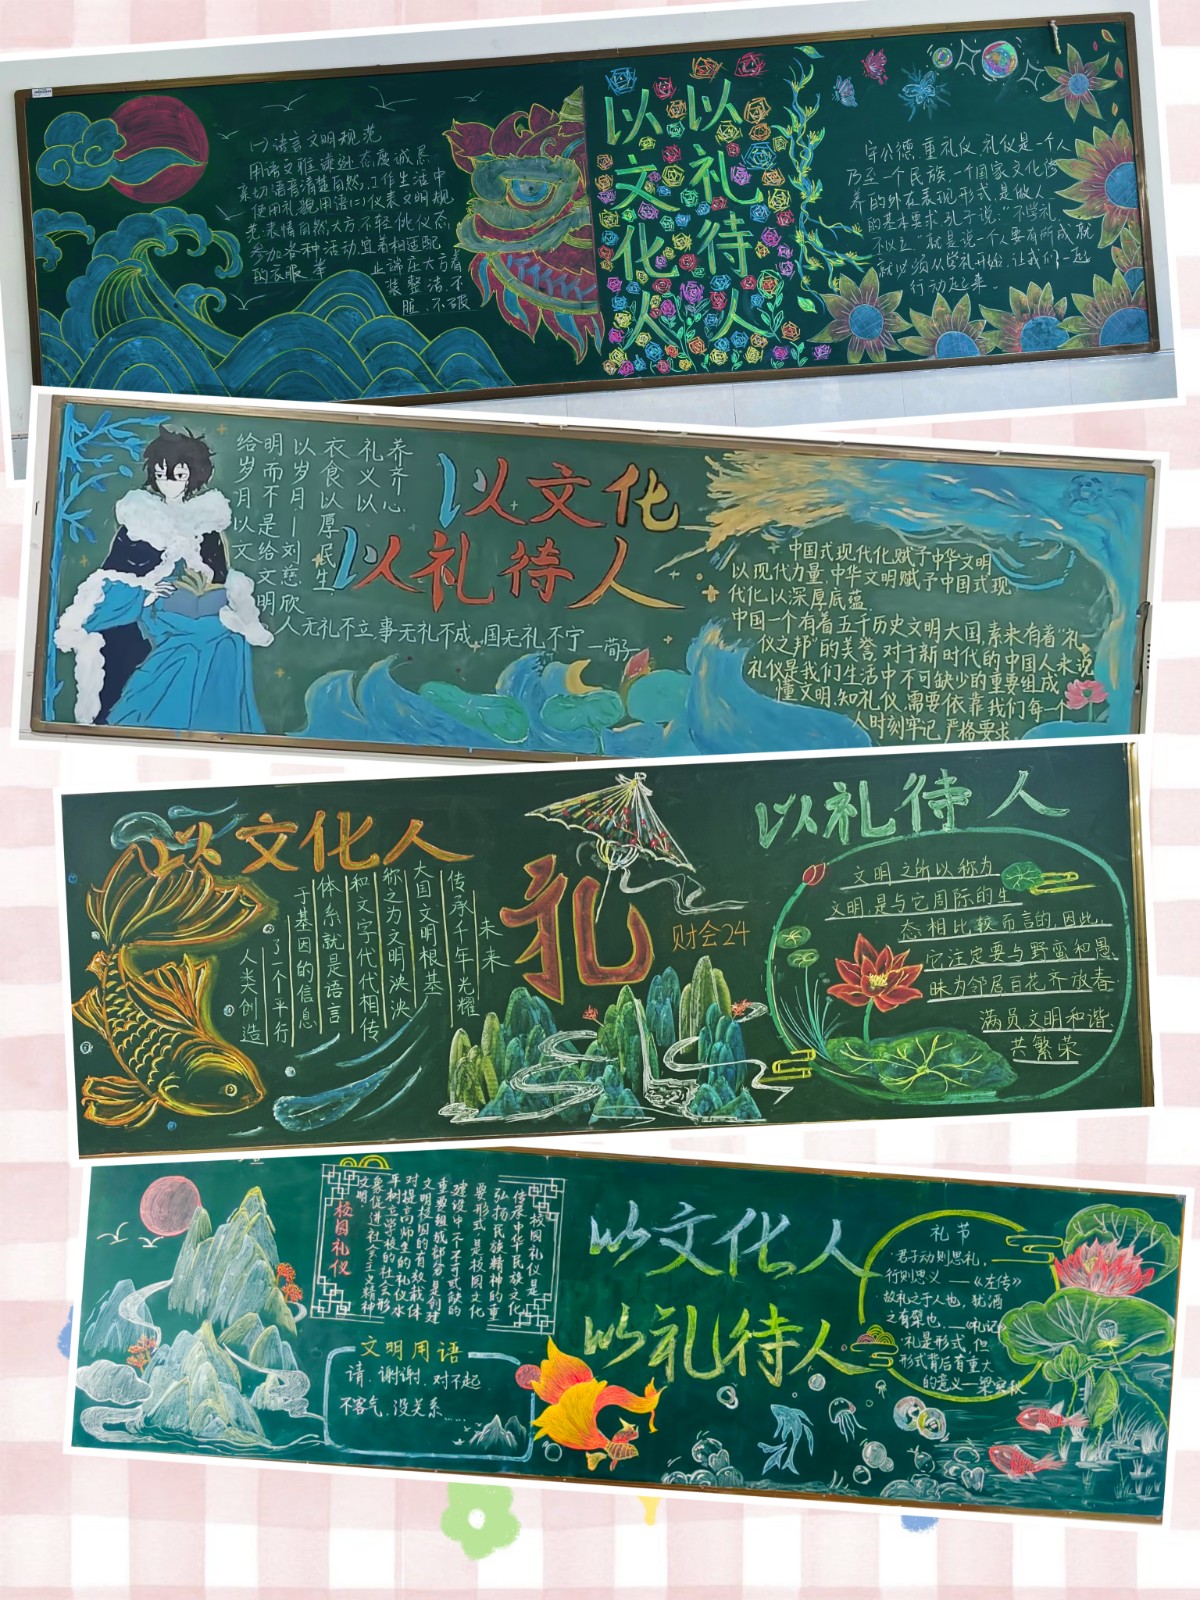 (一)语言文明规范
用语文雅谦逊态度诚恳
亲切语音清楚自然,工作生活中
使用礼貌用语(二)仪表文明规
范表情自然大方不轻佻仪态
参加各种活动宜着相适配
的衣服,举止端庄大方着
装整洁,不
脏、不破
以文化人
以礼待人
守公德,重礼仪,礼仪是一个人
乃至一个民族,一个国家文化修
养的外在表现形式,是做人
的基本要求孔子说:“不学礼
不以立”就是说一个人要有所成就
就必须从学礼开始,让我们一起
行动起来。
养齐心
礼义以
衣食以厚民生
以岁月—刘慈欣
明而不是给文明
给岁月以文
以文化
以礼待人
人无礼不立事无礼不成,国无礼不宁—荀子
中国式现代化赋予中华文明
以现代力量,中华文明赋予中国式现
代化以深厚底蕴
中国一个有着五千历史文明大国,素来有着“礼
仪之邦”的美誉,对于新时代的中国人来说
礼仪是我们生活中不可缺少的重要组成
懂文明,知礼仪,需要依靠我们每一个
人时刻牢记,严格要求
以文化人
人类创造
了一个平行
于基因的信息
体系就是语言
和文字代代相传
称之为文明泱泱
大国文明根基
传承千年光耀
未来
礼
财会24
以礼待人
文明之所以称为
文明,是与它周际的生
态相比较而言的,因此,
它注定要与野蛮和愚
昧为邻居百花齐放春
满员文明和谐
共繁荣
校园礼仪
校园礼仪是
传承中华民族文化
弘扬民族精神的重
要形式,是校园文化
建设中一个不可或缺的
重要组成部分,是创建
文明校园的有效载体
对提高师生的礼仪水
平树立学校的社会形
象促进社会主义精神
文明
文明用语
请、谢谢、对不起
不客气、没关系……
以文化人
以礼待人
礼节
“君子动则思礼,
行则思义——《左传》
故礼之于人也,犹酒
之有糵也,——《礼记》
礼是形式,但
形式背后有重大
的意义——梁实秋